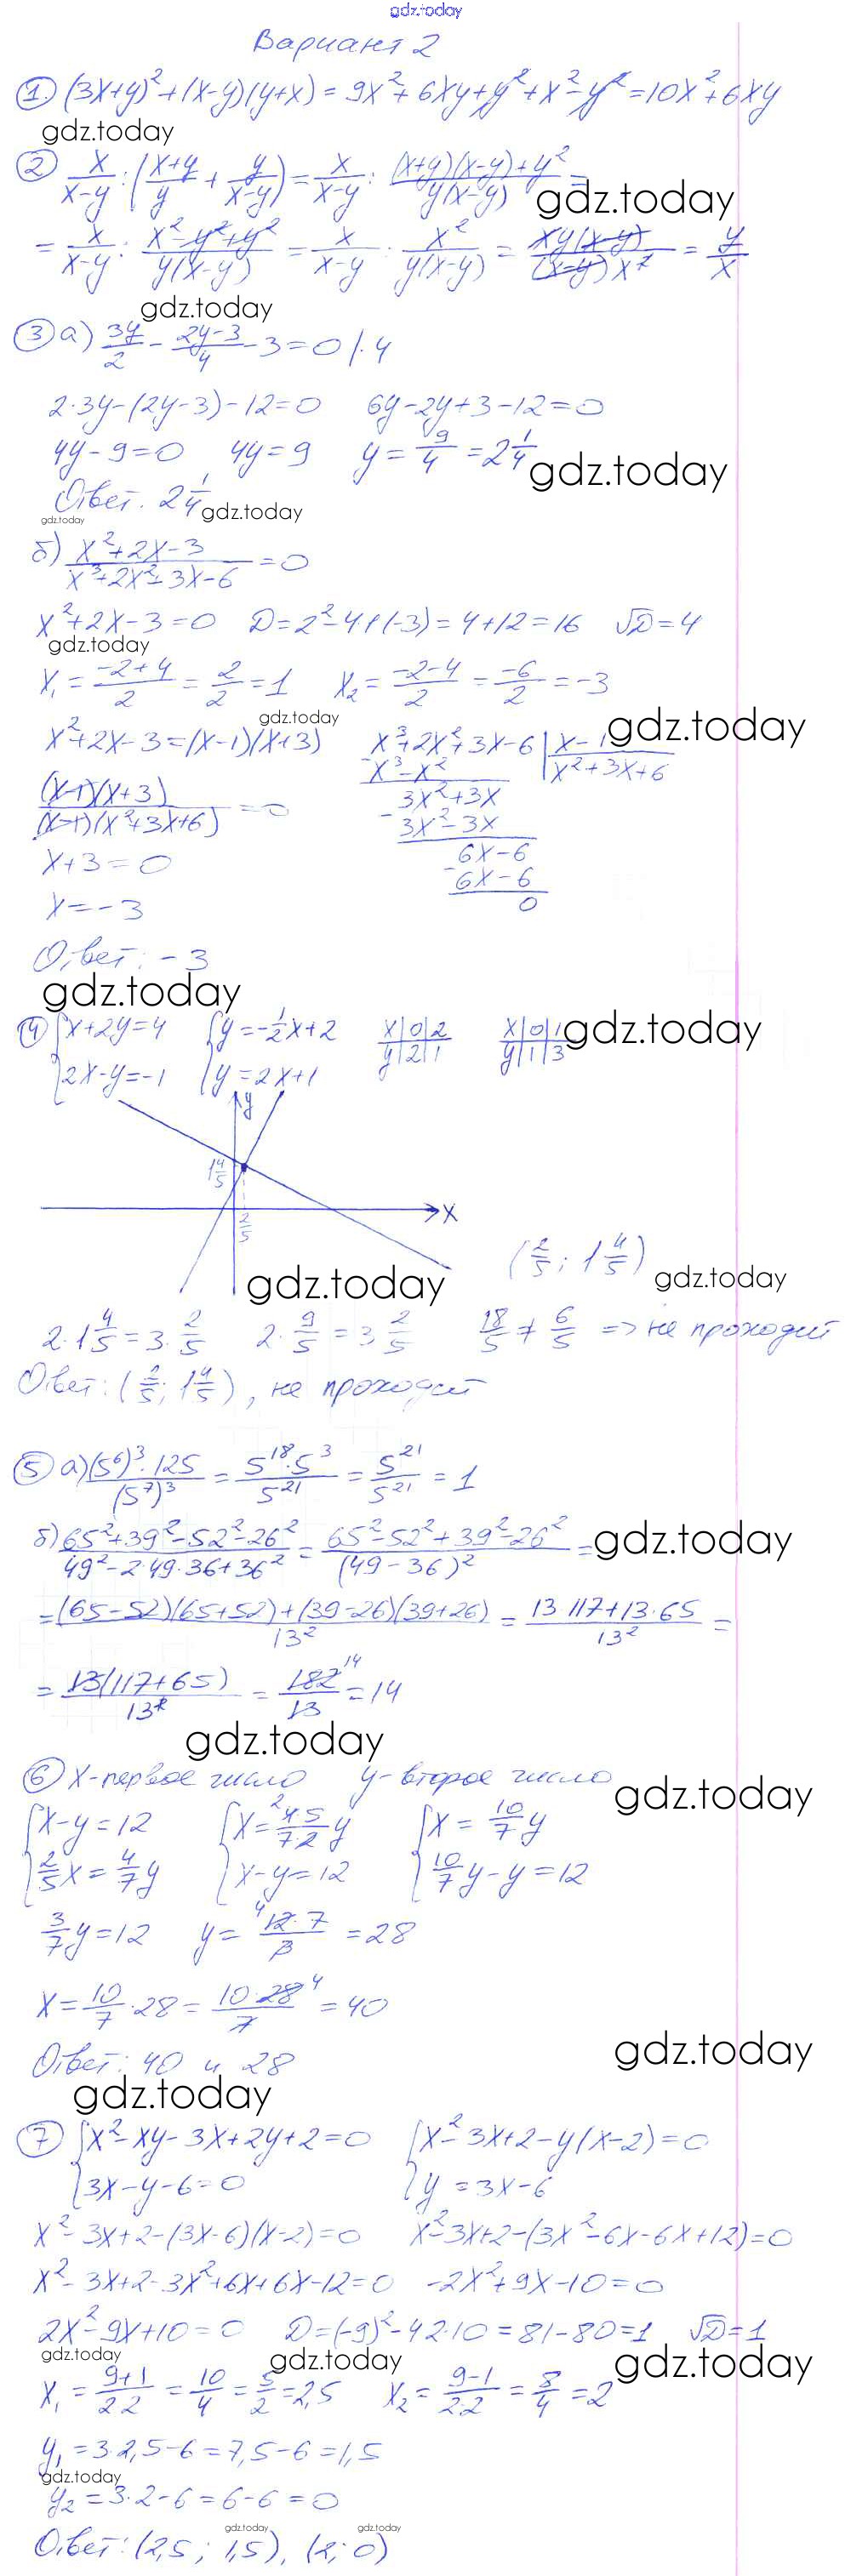 gdz.today
Вариант 2
① (3x+y)²+(x-y)(y+x) = 9x²+6xy+y²+x²-y² = 10x²+6xy
gdz.today
② x/(x-y) : ((x+y)/y + y/(x-y)) = x/(x-y) : ((x+y)(x-y)+y²)/(y(x-y)) =
gdz.today
= x/(x-y) : (x²-y²+y²)/(y(x-y)) = x/(x-y) : x²/(y(x-y)) = xy(x-y)/((x-y)x²) = y/x
gdz.today
③ а) 3y/2 - (2y-3)/4 - 3 = 0 |·4
2·3y-(2y-3)-12=0 6y-2y+3-12=0
4y-9=0 4y=9 y = 9/4 = 2 1/4
gdz.today
Ответ. 2 1/4
gdz.today
gdz.today
б) (x²+2x-3)/(x³+2x²+3x-6) = 0
x²+2x-3=0 D=2²-4·1·(-3)=4+12=16 √D=4
gdz.today
x₁ = (-2+4)/2 = 2/2 = 1 x₂ = (-2-4)/2 = -6/2 = -3
gdz.today
gdz.today
x²+2x-3=(x-1)(x+3) x³+2x²+3x-6 | x-1
x³-x² x²+3x+6
(x-1)(x+3)/((x-1)(x²+3x+6)) = 0 3x²+3x
3x²-3x
x+3=0 6x-6
6x-6
x=-3 0
Ответ: -3
gdz.today
④ {x+2y=4 {y=-1/2x+2 x|0|2 x|0|1
gdz.today
2x-y=-1 y=2x+1 y|2|1 y|1|3
y
1 4/5
x
2/5
(2/5; 1 4/5)
gdz.today
gdz.today
2·1 4/5 = 3·2/5 2·9/5 = 3·2/5 18/5 ≠ 6/5 => не проходит
Ответ: (2/5; 1 4/5), не проходит
⑤ а) (5⁶)³·125/(5⁷)³ = 5¹⁸·5³/5²¹ = 5²¹/5²¹ = 1
б) (65²+39²-52²-26²)/(49²-2·49·36+36²) = (65²-52²+39²-26²)/(49-36)² =
gdz.today
= ((65-52)(65+52)+(39-26)(39+26))/13² = (13·117+13·65)/13² =
= 13(117+65)/13² = 182/13 = 14
gdz.today
⑥ x-первое число y-второе число
gdz.today
{x-y=12 {x = 4·5/(7·2) y {x = 10/7 y
2/5x = 4/7y x-y=12 10/7y-y=12
3/7y=12 y = 12·7/3 = 28
x = 10/7·28 = 10·28/7 = 40
Ответ: 40 и 28
gdz.today
gdz.today
⑦ {x²-xy-3x+2y+2=0 {x²-3x+2-y(x-2)=0
3x-y-6=0 y=3x-6
x²-3x+2-(3x-6)(x-2)=0 x²-3x+2-(3x²-6x-6x+12)=0
x²-3x+2-3x²+6x+6x-12=0 -2x²+9x-10=0
2x²-9x+10=0 D=(-9)²-4·2·10=81-80=1 √D=1
gdz.today
gdz.today
gdz.today
x₁ = (9+1)/(2·2) = 10/4 = 5/2 = 2,5 x₂ = (9-1)/(2·2) = 8/4 = 2
y₁=3·2,5-6=7,5-6=1,5
gdz.today
y₂=3·2-6=6-6=0
gdz.today
gdz.today
Ответ: (2,5; 1,5), (2; 0)